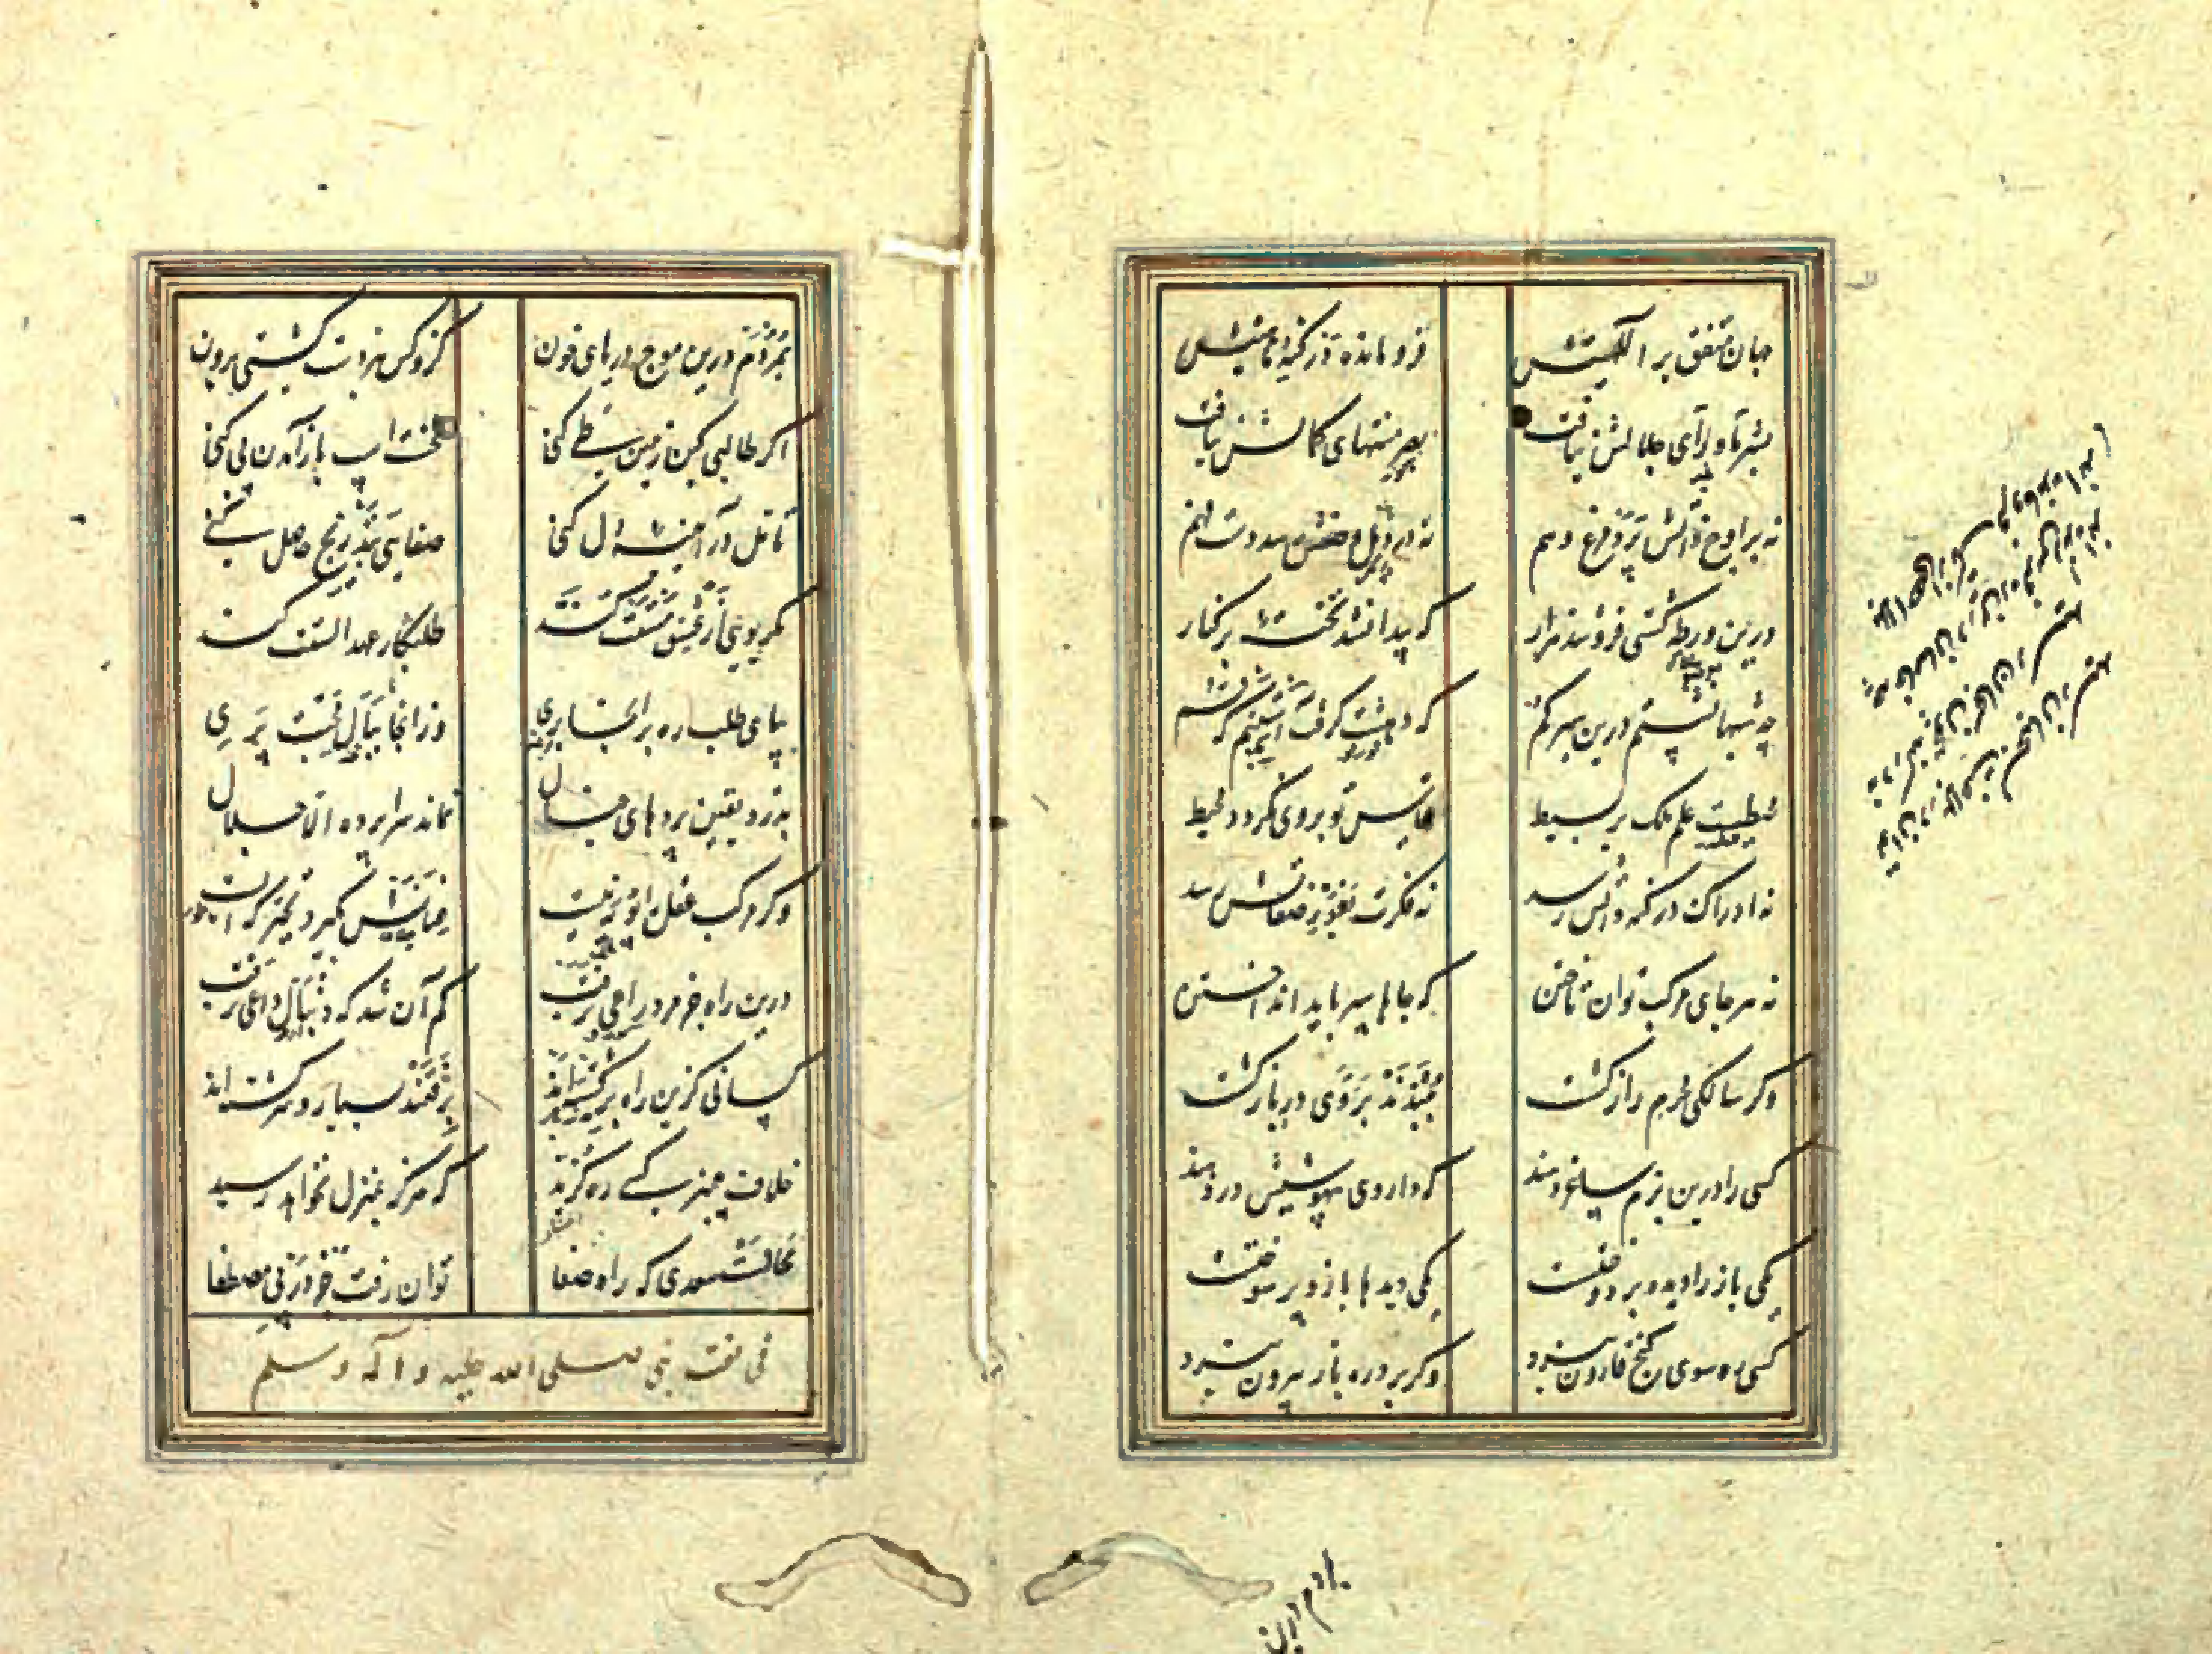 جهان متفق بر الهیتش فرو مانده در کنه ماهیتش
بشر ماورای جلالش نیافت بصر منتهای کمالش نیافت
نه بر اوج ذاتش پرد مرغ وهم نه در ذیل وصفش رسد دست فهم
درین ورطه کشتی فرو شد هزار که پیدا نشد تخته بر کنار
چه شبها نشستم درین سیر گم که دهشت گرفت آستینم که قم
محیطست علم ملک بر بسیط قیاس تو بر وی نگردد محیط
نه ادراک در کنه ذاتش رسد نه فکرت بغور صفاتش رسد
نه هر جای مرکب توان تاختن که جاها سپر باید انداختن
وگر سالکی محرم راز گشت ببندند بر وی در بازگشت
کسی را درین بزم ساغر دهند که داروی بیهوشیش در دهند
یکی باز را دیده بر دوختست یکی دیدها باز و پر سوختست
کسی ره سوی گنج قارون نبرد وگر برد ره باز بیرون نبرد
توان در بلاغت بسحبان رسید
نه در کنه بیچون سبحان رسید
که خاصان درین ره فرس رانده اند
بلا احصی از تک فرومانده اند
بمردم درین
بمردم درین موج دریای خون کزو کس نبردست کشتی برون
اگر طالبی کین زمین طی کنی نخست اسپ باز آمدن پی کنی
تأمل در آیینه دل کنی صفایی بتدریج حاصل کنی
مگر بویی از عشق مستت کند طلبکار عهد الستت کند
بپای طلب ره بر آنجا بری وز آنجا ببال محبت پری
بدرد یقین پردهای خیال نماند سراپرده الا جلال
دگر مرکب عقل را پویه نیست عنانش بگیرد تحیر که ایست
درین راه جز مرد راعی نرفت گم آن شد که دنبال داعی نرفت
کسانی کزین راه برگشته اند برفتند بسیار و سرگشته اند
خلاف پیمبر کسی ره گزید که هرگز بمنزل نخواهد رسید
محالست سعدی که راه صفا توان رفت جز در پی مصطفا
فی نعت نبی صلی الله علیه و آله و سلم